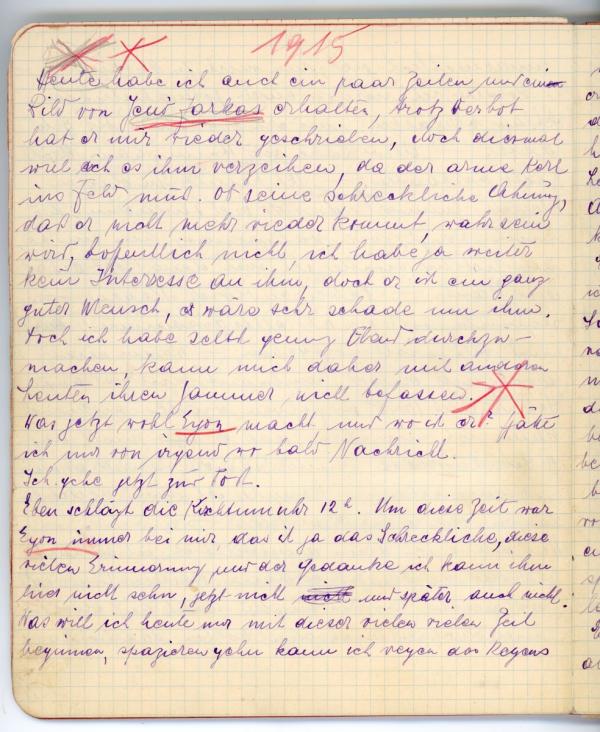 1915
Heute habe ich auch ein paar Zeilen und ein
Bild von Jenö Farkas erhalten, trotz Verbot
hat er mir wieder geschrieben, doch diesmal
will ich es ihm verzeihen, da der arme Kerl
ins Feld muß. Ob seine schreckliche Ahnung,
das er nicht mehr wieder kommt, wahr sein
wird, hofentlich nicht, ich habe ja weiter
kein Interesse an ihm, doch er ist ein ganz
guter Mensch, es wäre sehr schade um ihm.
Doch ich habe selbst genug Elend durchzu-
machen, kann mich daher mit anderen
Leuten ihren Jammer nicht befassen.
Was jetzt wohl Egon macht und wo ist er? Hätte
ich nur von irgend wo bald Nachricht.
Ich gehe jetzt zur Post.
Eben schlägt die Kirchturmuhr 12 h. Um diese Zeit war
Egon immer bei mir, das ist ja das Schreckliche, diese
vielen Erinnerung und der Gedanke ich kann ihm
hier nicht sehn, jetzt nicht und später auch nicht.
Was will ich heute nur mit dieser vielen vielen Zeit
beginnen, spazieren gehn kann ich wegen des Regens